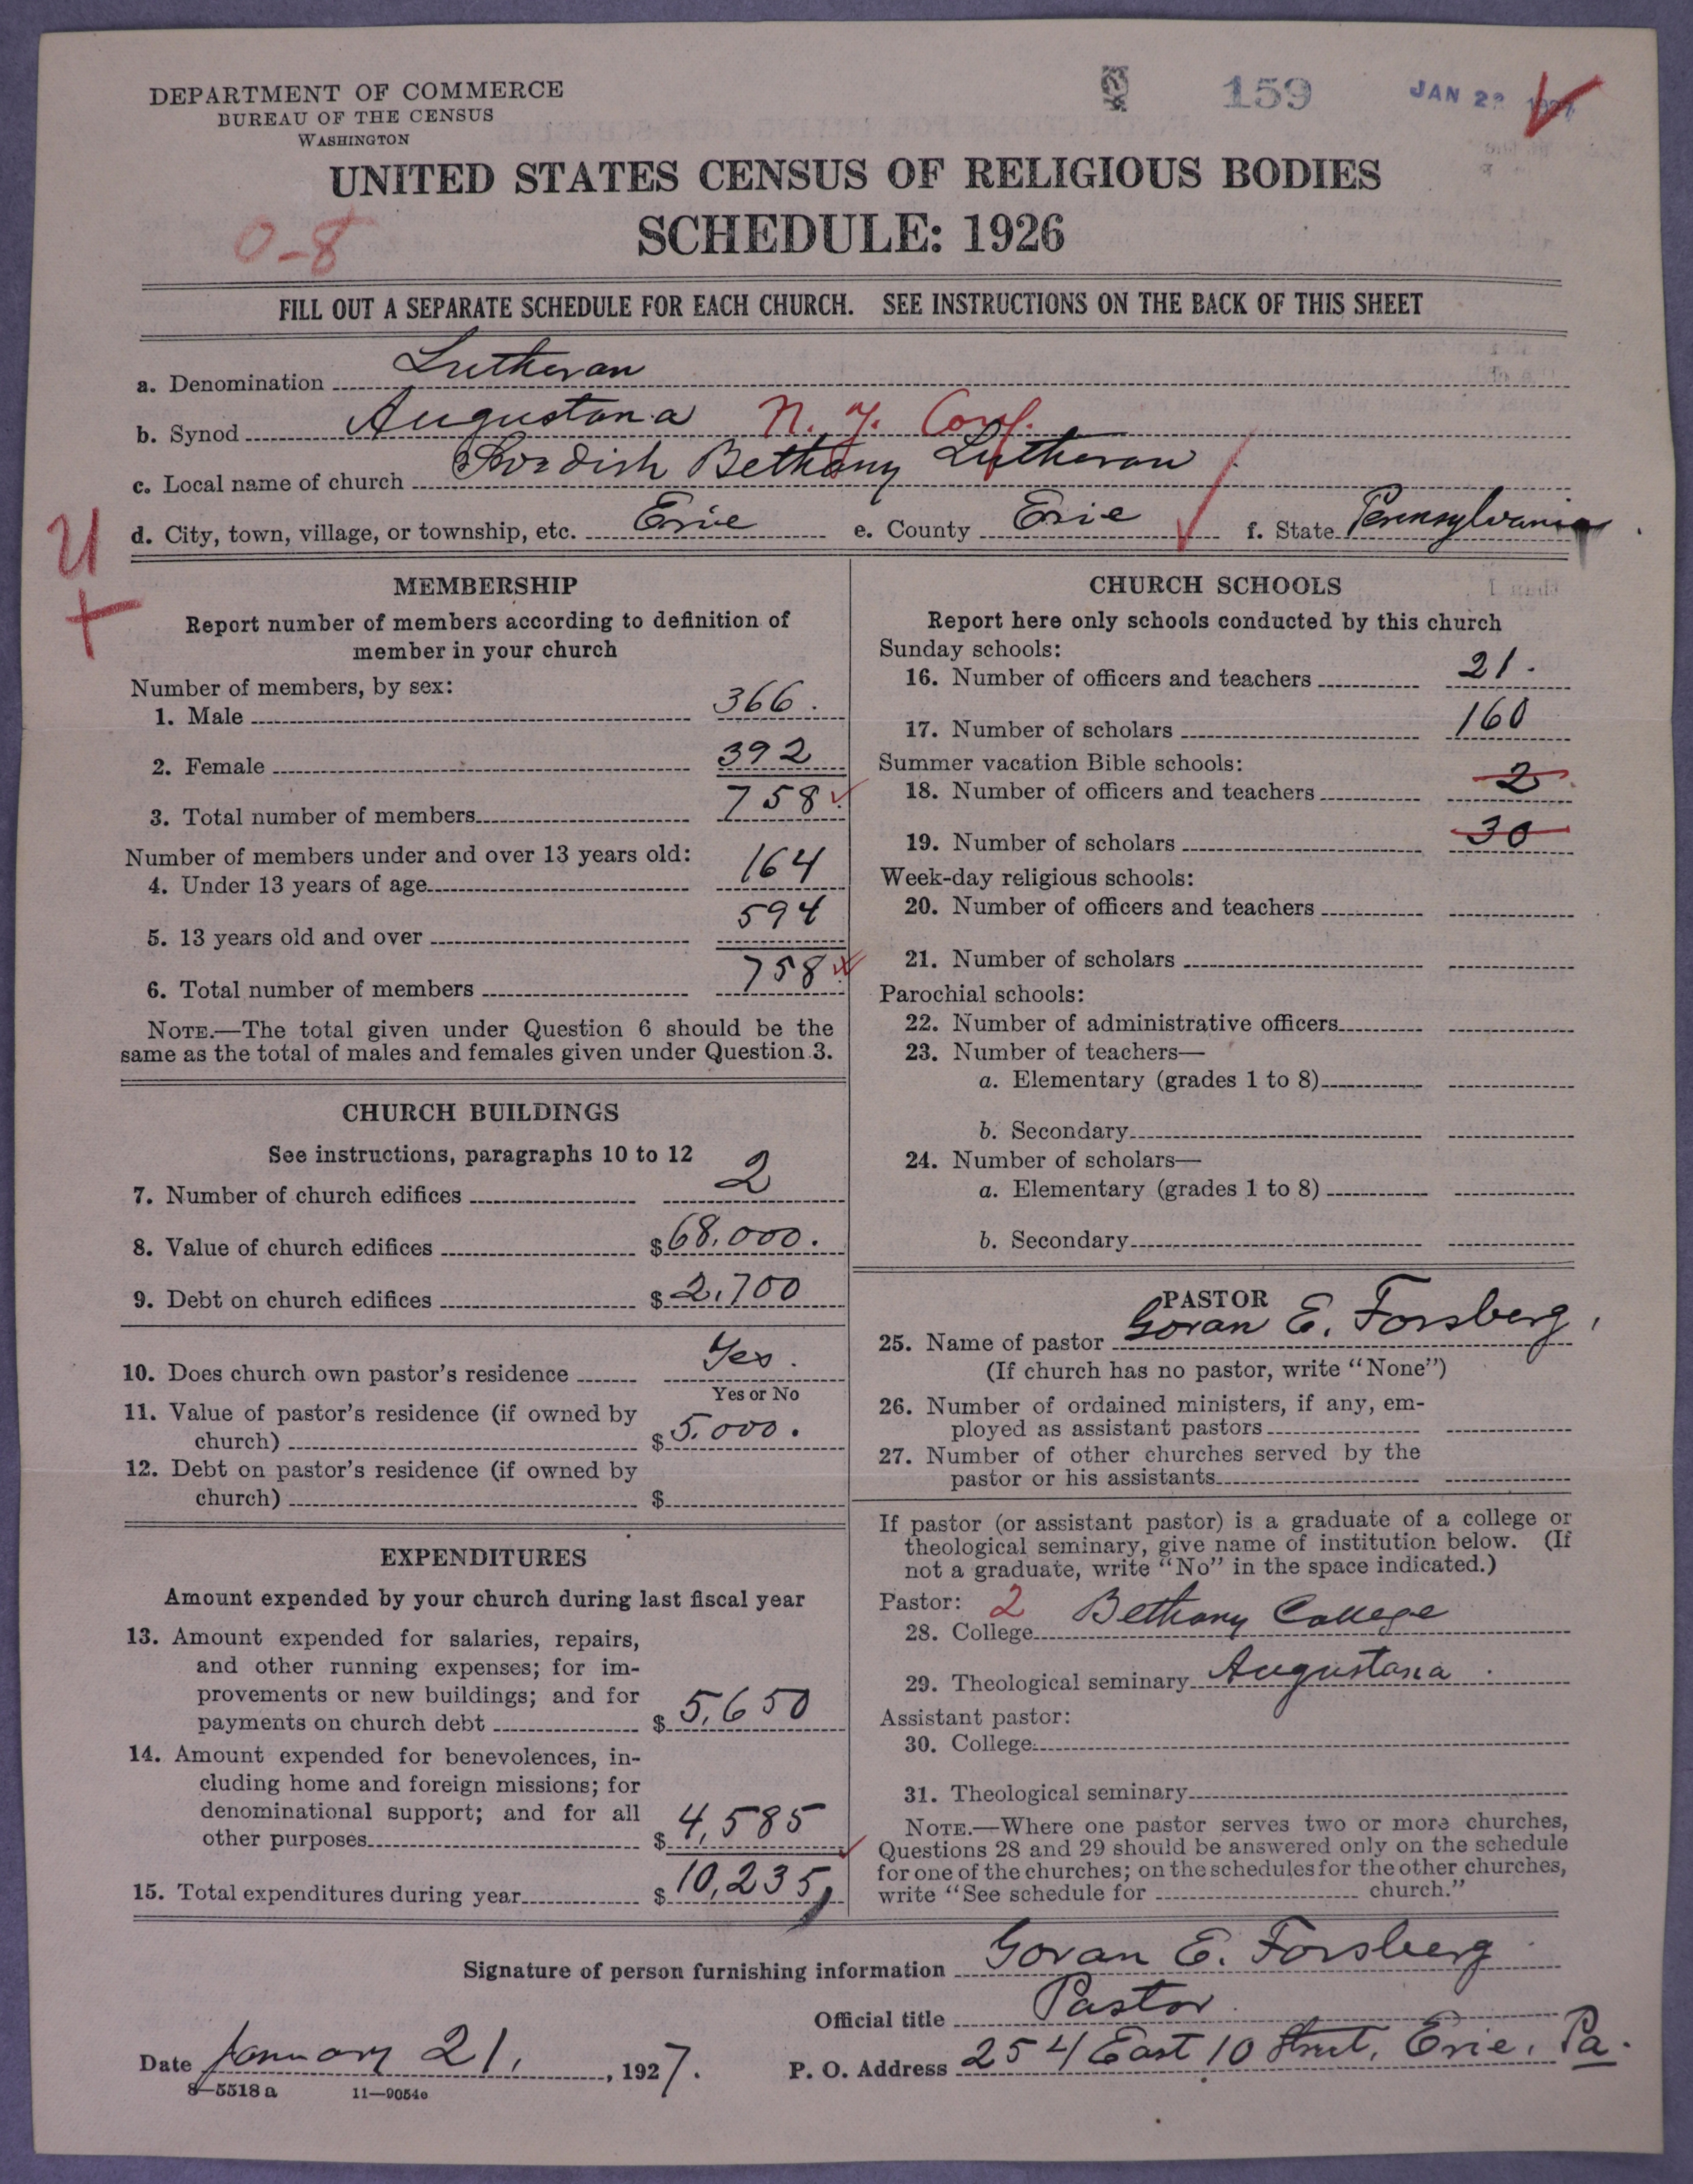 DEPARTMENT OF COMMERCE
BUREAU OF THE CENSUS
WASHINGTON
159
JAN 22 1927
UNITED STATES CENSUS OF RELIGIOUS BODIES
SCHEDULE: 1926
0-8
FILL OUT A SEPARATE SCHEDULE FOR EACH CHURCH. SEE INSTRUCTIONS ON THE BACK OF THIS SHEET
a. Denomination Lutheran
b. Synod Augustana N. Y. Conf.
c. Local name of church Swedish Bethany Lutheran
d. City, town, village, or township, etc. Erie e. County Erie f. State Pennsylvania
U
MEMBERSHIP
Report number of members according to definition of
member in your church
Number of members, by sex:
1. Male 366.
2. Female 392
3. Total number of members 758
Number of members under and over 13 years old:
4. Under 13 years of age 164
5. 13 years old and over 594
6. Total number of members 758
NOTE.—The total given under Question 6 should be the
same as the total of males and females given under Question 3.
CHURCH BUILDINGS
See instructions, paragraphs 10 to 12
7. Number of church edifices 2
8. Value of church edifices $68,000.
9. Debt on church edifices $2,700
10. Does church own pastor's residence Yes.
Yes or No
11. Value of pastor's residence (if owned by
church) $5,000.
12. Debt on pastor's residence (if owned by
church) $
EXPENDITURES
Amount expended by your church during last fiscal year
13. Amount expended for salaries, repairs,
and other running expenses; for im-
provements or new buildings; and for
payments on church debt $5,650
14. Amount expended for benevolences, in-
cluding home and foreign missions; for
denominational support; and for all
other purposes $4,585
15. Total expenditures during year $10,235
CHURCH SCHOOLS
Report here only schools conducted by this church
Sunday schools:
16. Number of officers and teachers 21.
17. Number of scholars 160
Summer vacation Bible schools:
18. Number of officers and teachers 2
19. Number of scholars 30
Week-day religious schools:
20. Number of officers and teachers
21. Number of scholars
Parochial schools:
22. Number of administrative officers
23. Number of teachers—
a. Elementary (grades 1 to 8)
b. Secondary
24. Number of scholars—
a. Elementary (grades 1 to 8)
b. Secondary
PASTOR
25. Name of pastor Goran E. Forsberg,
(If church has no pastor, write "None")
26. Number of ordained ministers, if any, em-
ployed as assistant pastors
27. Number of other churches served by the
pastor or his assistants
If pastor (or assistant pastor) is a graduate of a college or
theological seminary, give name of institution below. (If
not a graduate, write "No" in the space indicated.)
Pastor: 2
28. College Bethany College
29. Theological seminary Augustana
Assistant pastor:
30. College
31. Theological seminary
NOTE.—Where one pastor serves two or more churches,
Questions 28 and 29 should be answered only on the schedule
for one of the churches; on the schedules for the other churches,
write "See schedule for church."
Signature of person furnishing information Goran E. Forsberg
Official title Pastor
Date January 21, 1927. P. O. Address 254 East 10 Street, Erie, Pa.
8—5518 a 11—9054e